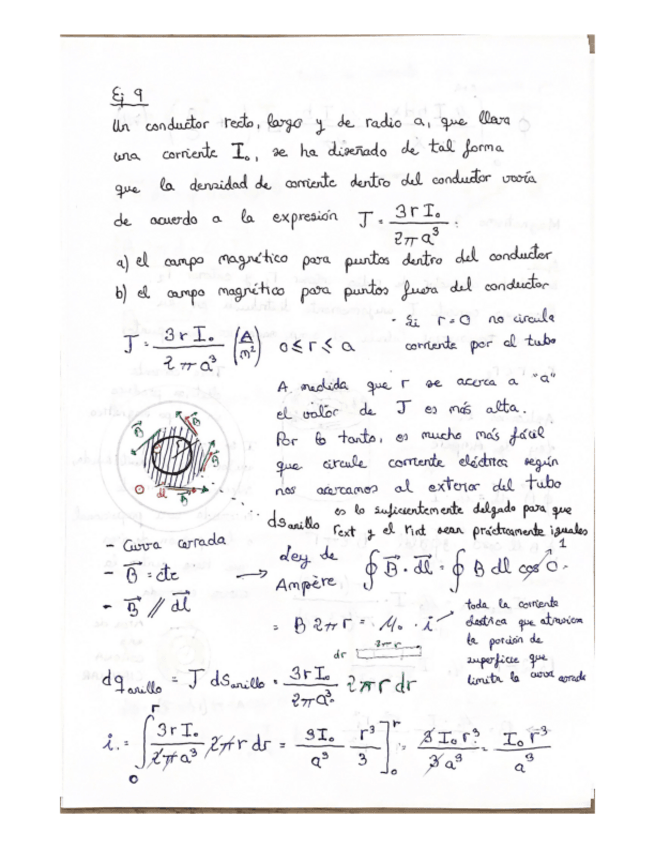 Ej 9
Un conductor recto, largo y de radio a, que lleva
una corriente I₀, se ha diseñado de tal forma
que la densidad de corriente dentro del conductor varía
de acuerdo a la expresión J = 3rI₀ / 2πa³.
a) el campo magnético para puntos dentro del conductor
b) el campo magnético para puntos fuera del conductor
J = 3rI₀ / 2πa³ (A/m²) 0 ≤ r ≤ a
- Si r=0 no circula
corriente por el tubo
A medida que r se acerca a "a"
el valor de J es más alta.
Por lo tanto, es mucho más fácil
que circule corriente eléctrica según
nos acercamos al exterior del tubo
B⃗ B⃗ B⃗ B⃗ dl r
dSanillo es lo suficientemente delgado para que
rext y el rint sean prácticamente iguales
- Curva cerrada
- B⃗ = cte
- B⃗ // dl⃗
→ Ley de Ampère ∮ B⃗ · dl⃗ = ∮ B dl cos 0 · 1
= B 2πr = μ₀ · i
toda la corriente
eléctrica que atraviesa
la porción de
superficie que
limita la curva cerrada
dr 2πr
dqanillo = J dSanillo = 3rI₀ / 2πa³ 2πr dr
i = ∫₀ʳ 3rI₀ / 2πa³ 2πr dr = 3I₀ / a³ r³ / 3 ]₀ʳ = 3I₀r³ / 3a³ = I₀r³ / a³